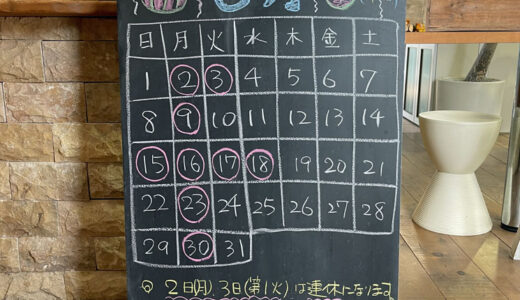 日 月 火 水 木 金 土
1 2 3 4 5 6 7
8 9 10 11 12 13 14
15 16 17 18 19 20 21
22 23 24 25 26 27 28
29 30 31
2日(月) 3日(第1火)は連休になります